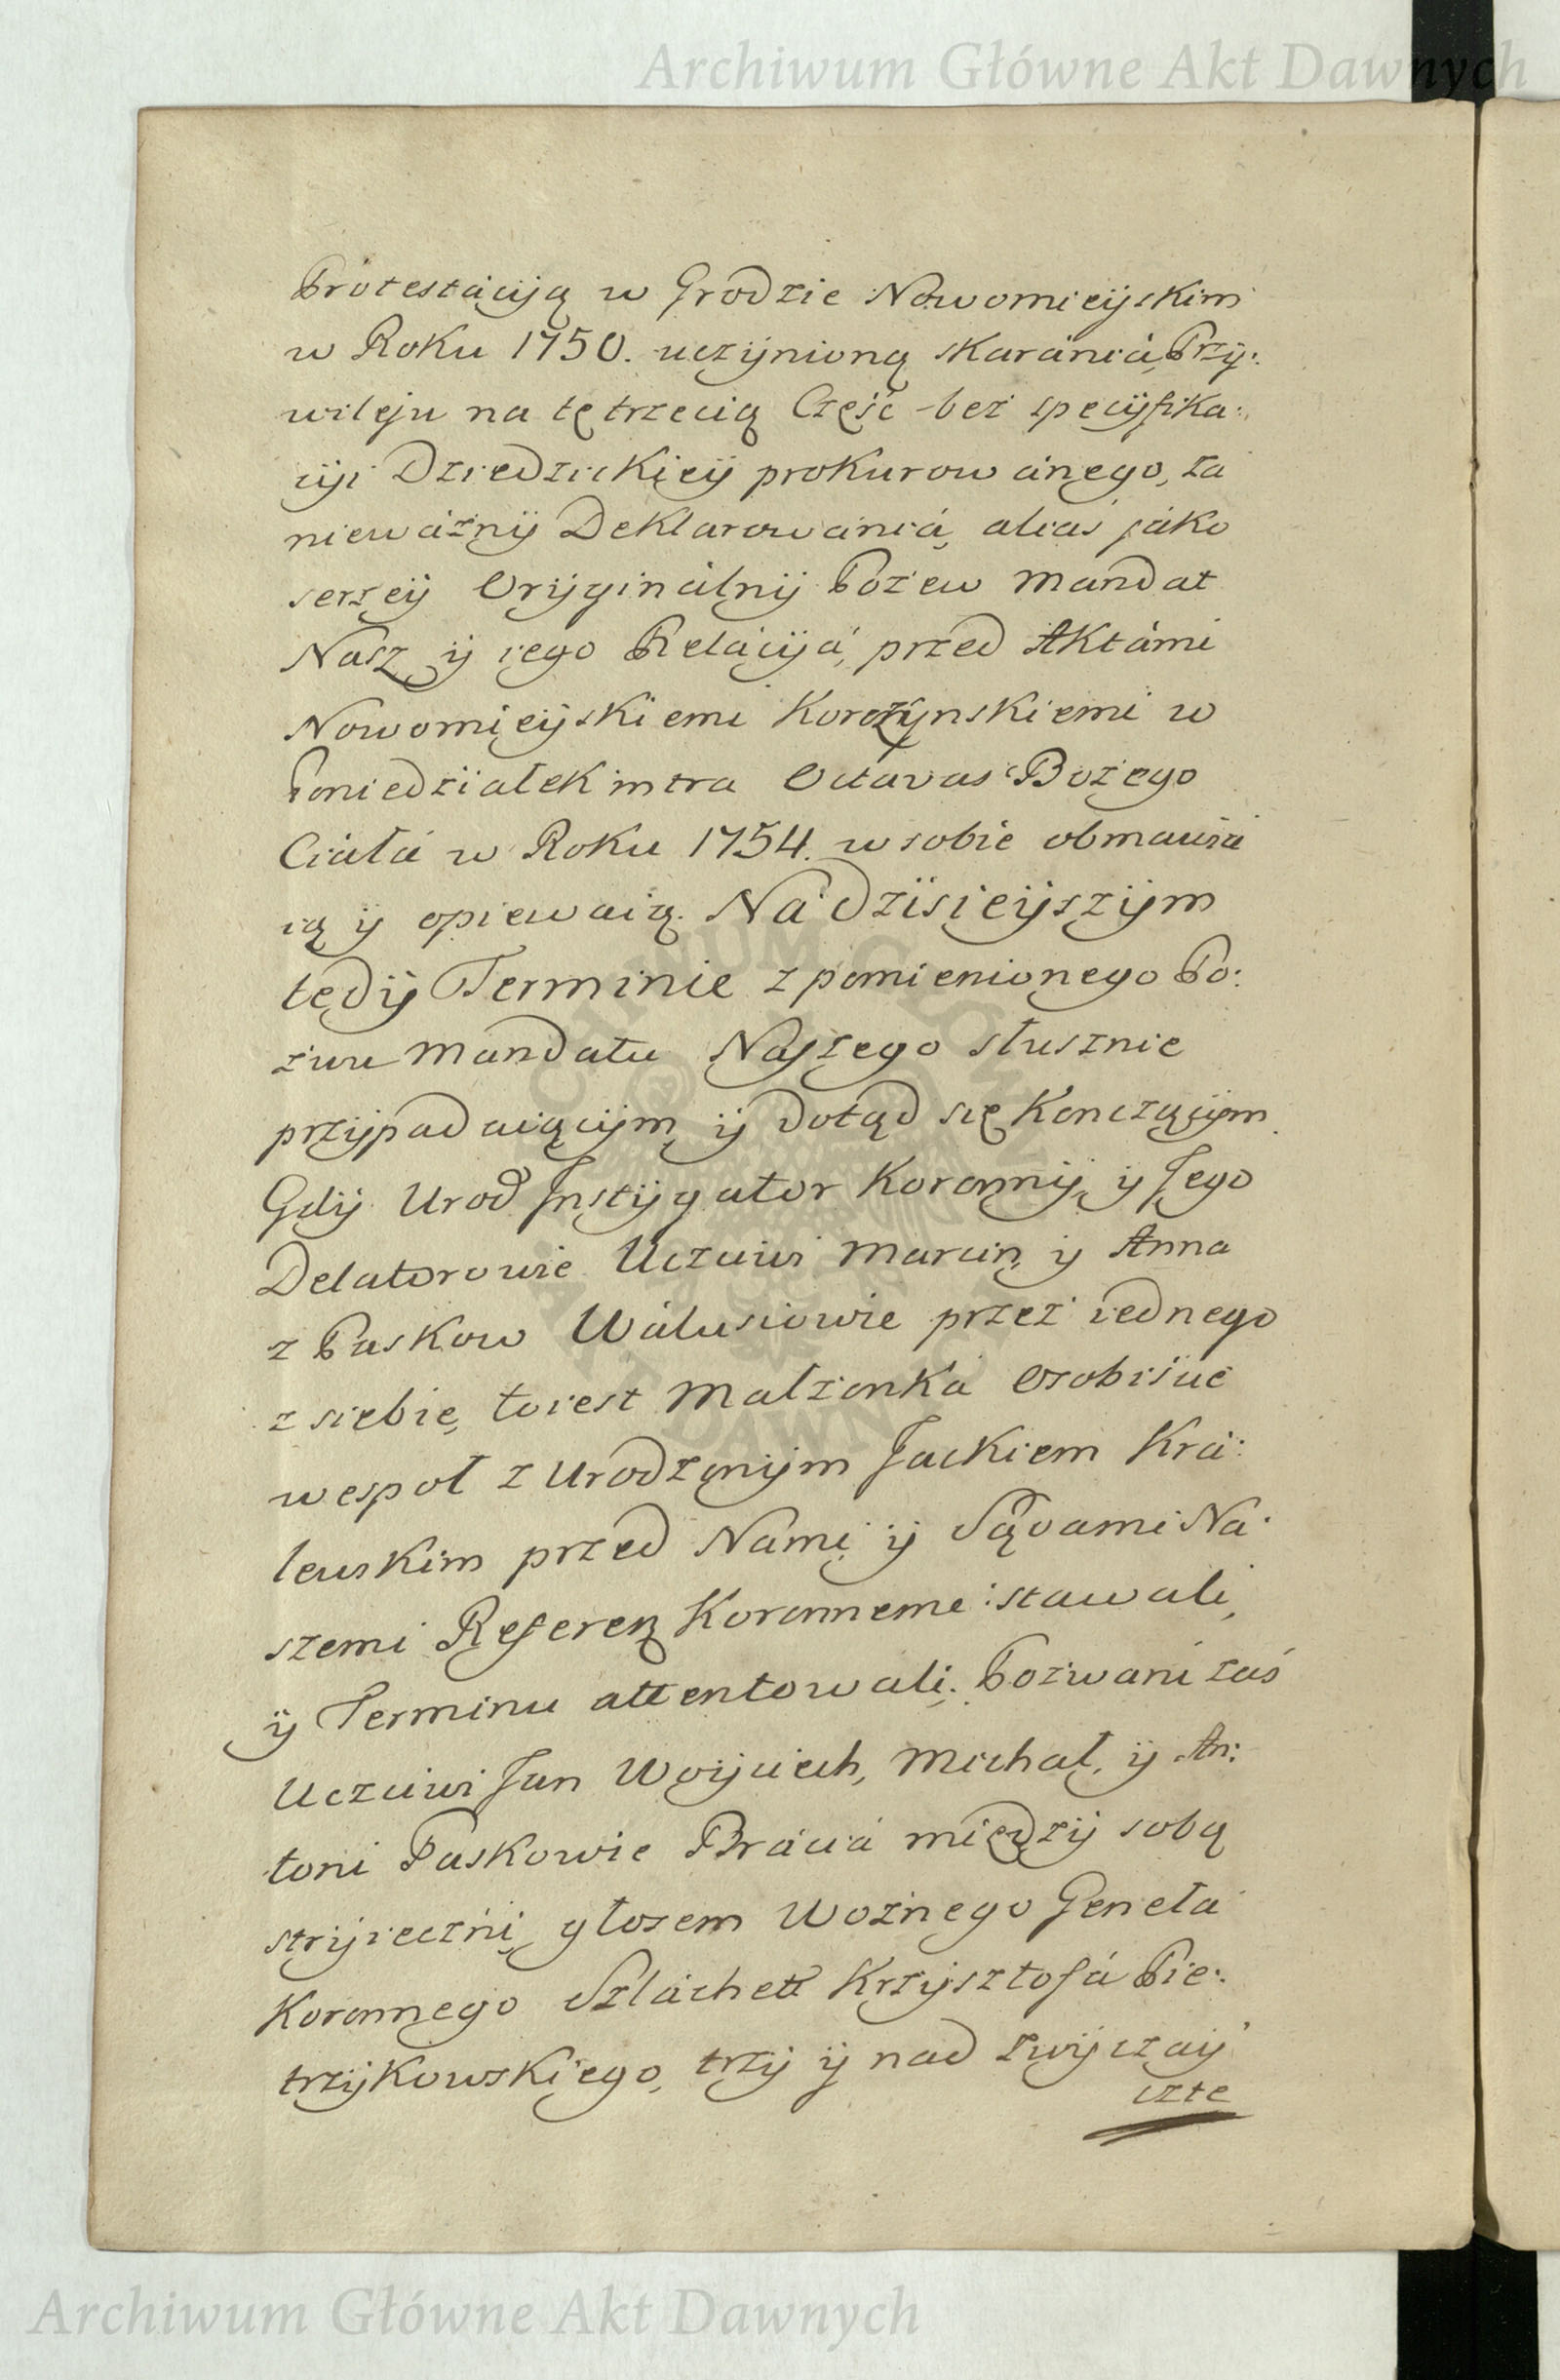 Archiwum Główne Akt Dawnych
Protestacyią w Grodzie Nowomieyskim
w Roku 1750. uczynioną skarania, Przy:
wileju na tę trzecią Część bez specyfika:
cyi Dziedzickiey prokurowanego, za
nieważny Deklarowania, alias jako
serzey Oryginalny Pozew Mandat
Nasz y iego Relacyia, przed Aktami
Nowomieyskiemi Korczynskiemi w
Poniedziałek intra Octavas Bożego
Ciała w Roku 1754. w sobie obmawia
ią y opiewaią. Na dzisieyszym
tedy Terminie z pomienionego Po:
zwu Mandatu Naszego słusznie
przypadaiącym y dotąd się Konczącym
Gdy Urod Instygator Koronny y Jego
Delatorowie Uczciwi Marcin y Anna
z Paskow Walusiowie przez iednego
z siebie, to iest Małżonka Osobiście
wespoł z Urodzonym Jackiem Kra:
lewskim przed Nami y Sądami Na:
szemi Referen Koronneme: stawali,
y Terminu attentowali. Pozwani zaś
Uczciwi Jan Woyciech, Michał, y An:
toni Paskowie Bracia między sobą
stryieczni, głosem Woźnego Geneła
Koronnego Szlachett Krzysztofa Pie:
trzykowskiego, trzy y nad zwyczay
czte
Archiwum Główne Akt Dawnych